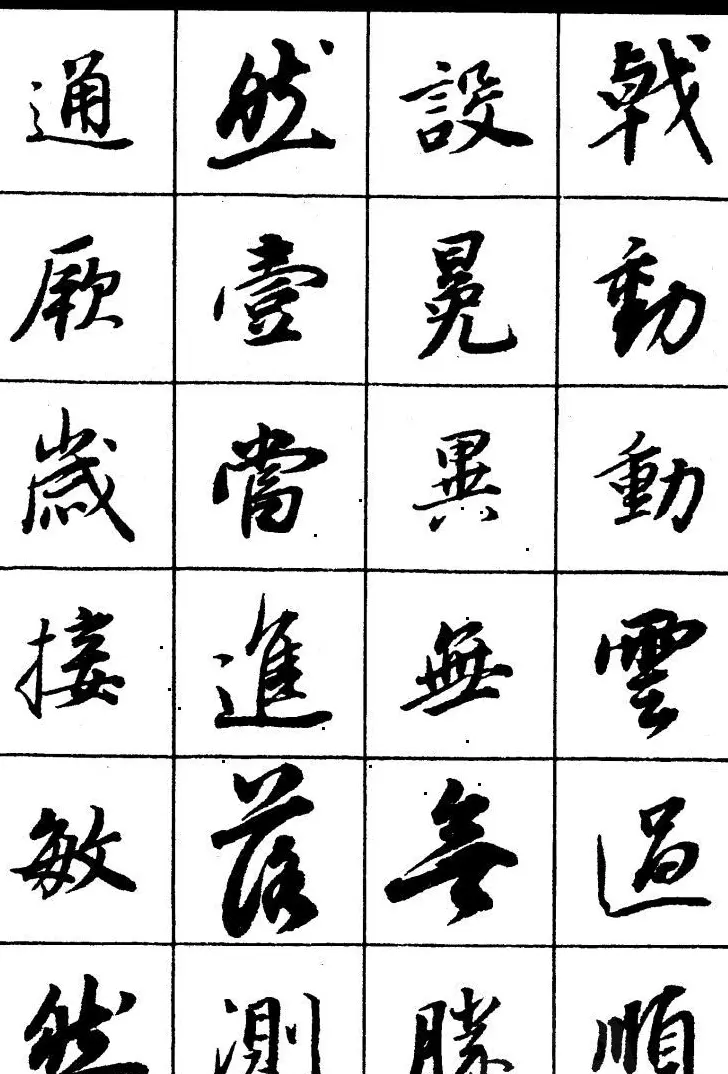 戟動動雲過順
設冕異無無勝
然壹當進落測
通厥歲接敏然